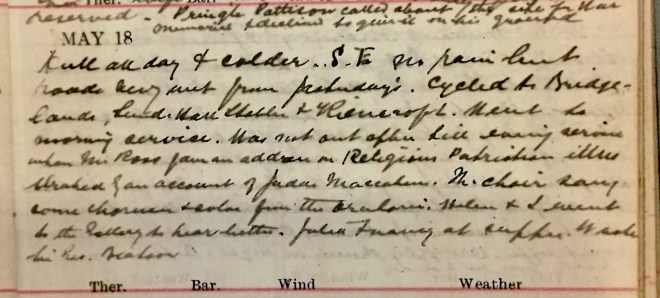 Ther. Bar. Wind Weather
reserved. Pringle Pattison called about the site for War
memorial & declined to give it on his ground
MAY 18
Dull all day & colder. S.E. no rain but
roads very wet from yesterday's. Cycled to Bridge-
lands, Hall &. Went to
morning service. Was not out after till evening service
when Mr Ross gave an address on Religious Patriotism illus
trated by an account of Judas Maccabeus. The choir sang
some choruses & solos from the oratorio. Helen & I went
to the Gallery to hear better. Julia at supper. Wrote
Ther. Bar. Wind Weather